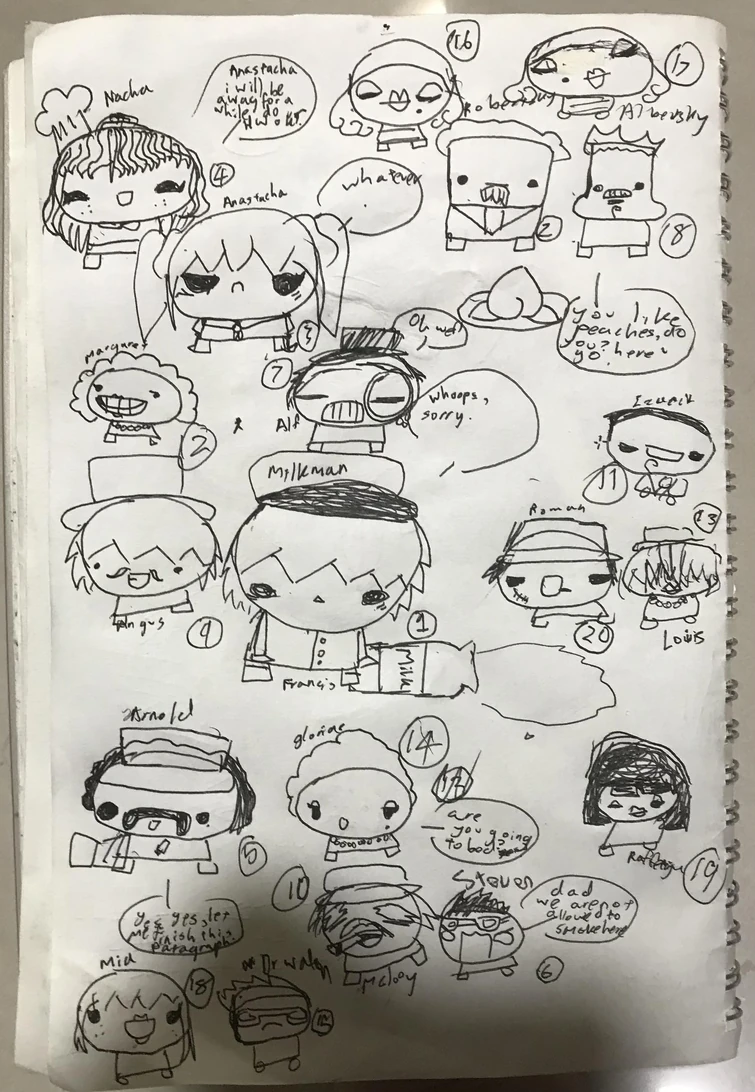 16
17
Nacha
Anastacha
i will be
away for a
while do
Albertsky
4
Anastacha
whatever
.
2
18
3
Oh wow
you like
peaches, do
you?
go here
Margaret
7
Alf
whoops,
sorry.
Izaack
2
11
Milkman
Roman
13
Angus
9
1
20
Louis
Milk
Francis
Arnold
gloriae
14
are
you going
to bed?
5
19
10
Steven
dad
we are not
allowed to
smoke here
yes yes, let
me finish this
paragraph.
Mclooy
6
Mia
18
15